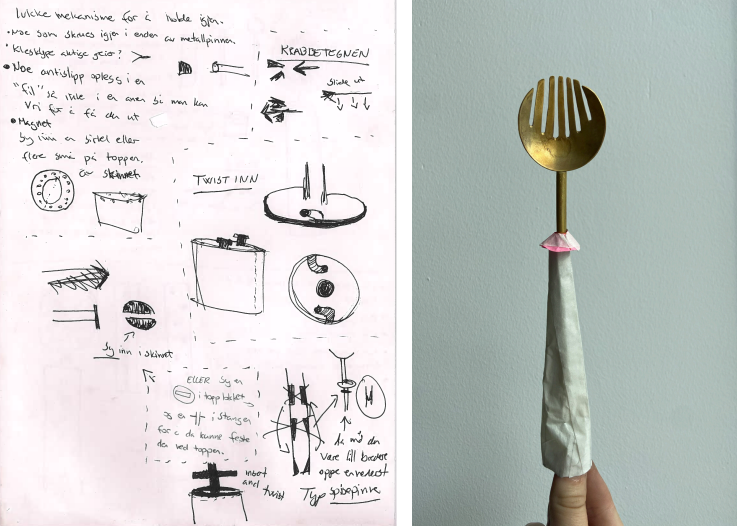 lukke mekanisme for å holde igjen.
• Noe som skrues igjen i enden av metallpinnen.
• Klesklype aktige greier?
• Noe antislipp opplegg i en
"fil" så ikke i en annen så man kan
Vri for å få den ut
• Magnet
Sy inn en sirkel eller
flere små på toppen.
av skinnet
KRABBETEGNEN
Slide ut
TWIST INN
Sy inn i skinnet
ELLER Sy en
i topp
og en i stangen
for å da kunne feste
den ved toppen.
insert
and
twist
må den
være litt bredere
oppe enn nederst
Typ spisepinne